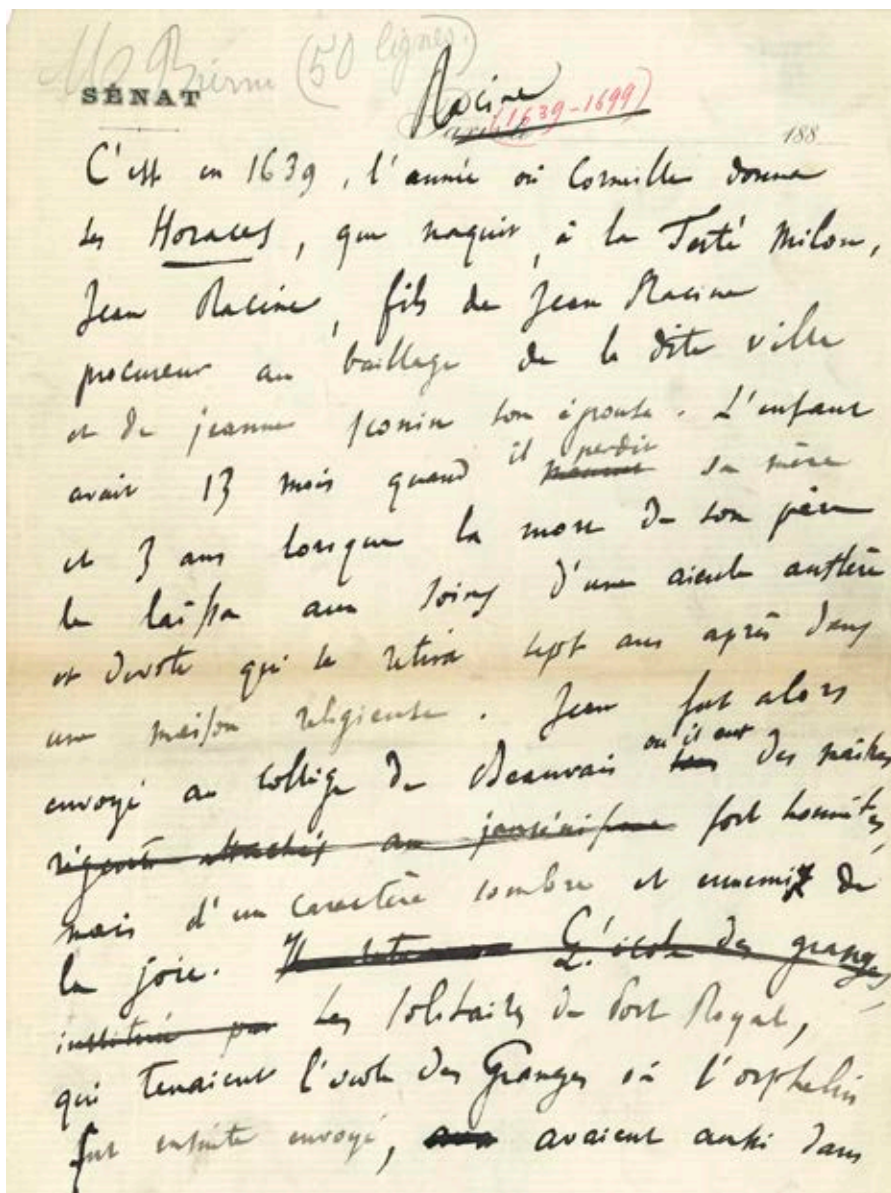 (50 lignes.)
SÉNAT
Racine
(1639-1699)
188
C'est en 1639, l'année où Corneille donna
les Horaces, que naquit, à la Ferté Milon,
Jean Racine, fils de Jean Racine
procureur au baillage de la dite ville
et de jeanne sconin son épouse. L'enfant
avait 13 mois quand il perdit sa mère
et 3 ans lorsque la mort de son père
le laissa aux soins d'une aieule austère
et devote qui se retira sept ans après dans
une maison religieuse. Jean fut alors
envoyé au collège de Beauvais où il eut des maîtres
régents attachés au jansénisme fort honnêtes,
mais d'un caractère sombre et ennemis de
la joie. L'école des granges,
instituée par Les solitaires de Port Royal,
qui tenaient l'école des Granges où l'orphelin
fut ensuite envoyé, avaient aussi dans